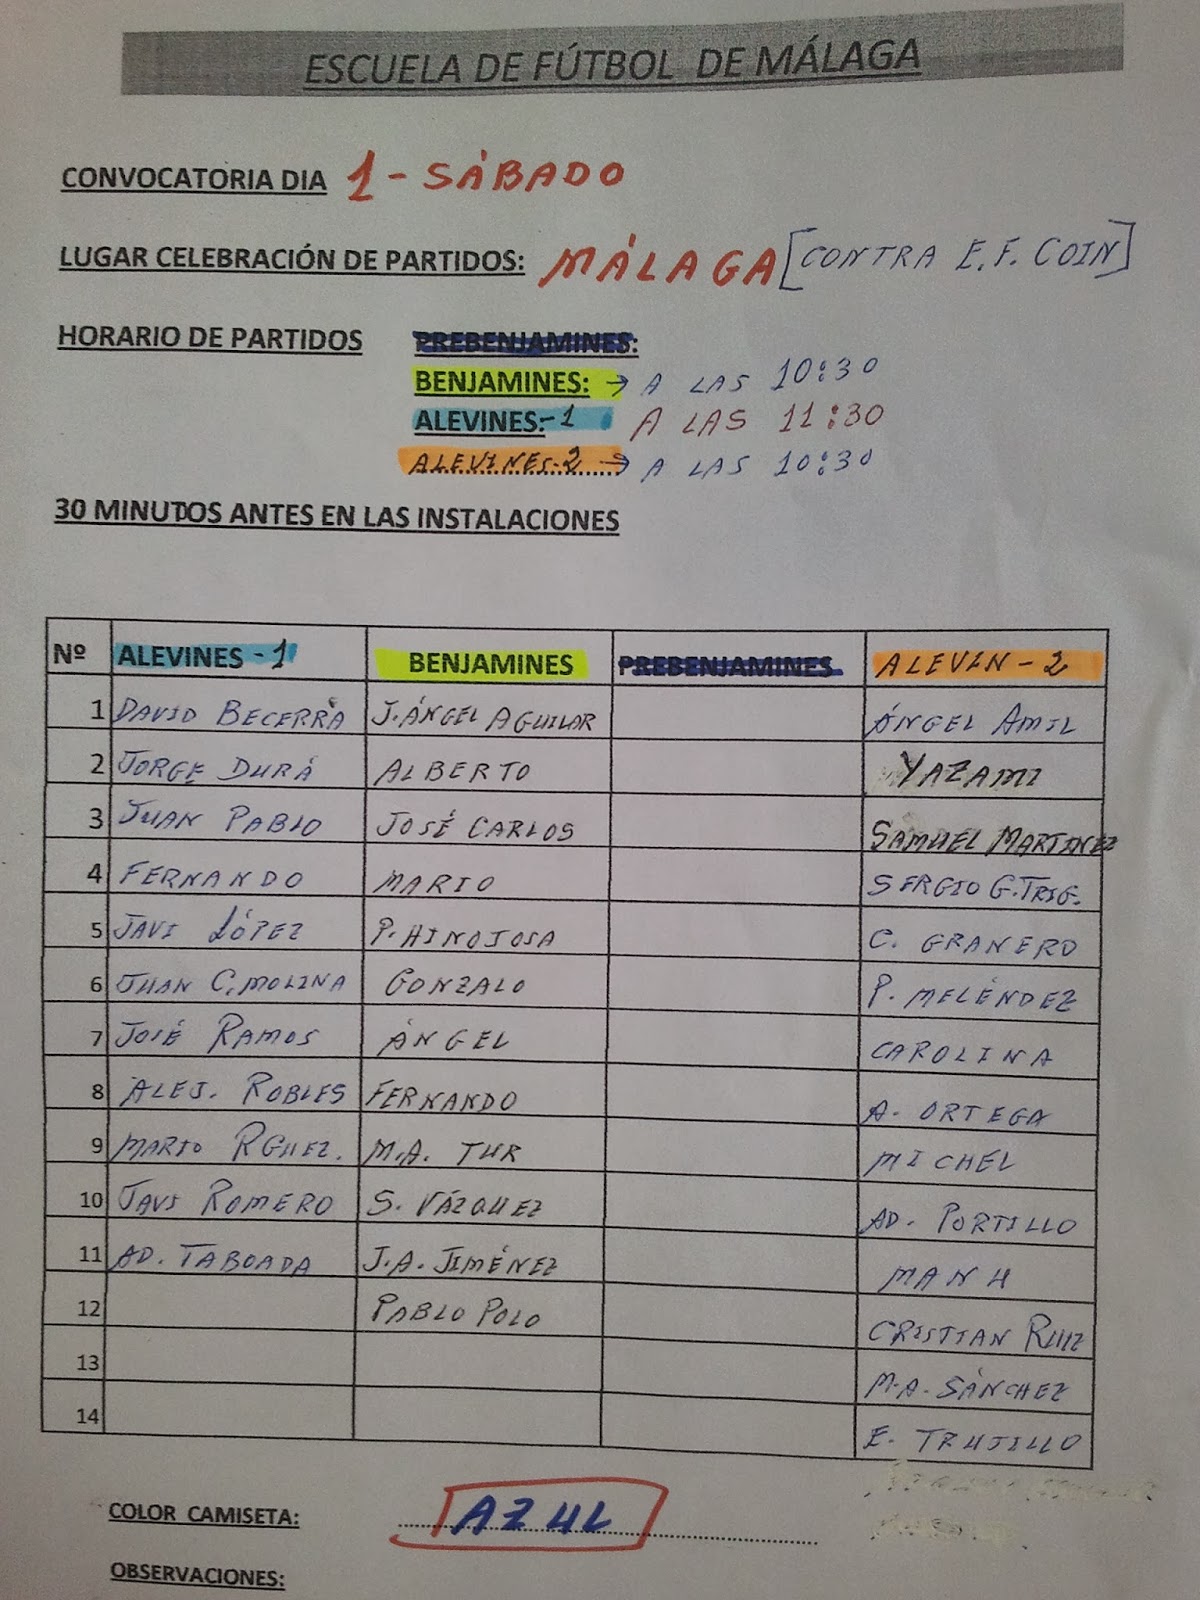 ESCUELA DE FÚTBOL DE MÁLAGA
CONVOCATORIA DIA 1 - SÁBADO
LUGAR CELEBRACIÓN DE PARTIDOS: MÁLAGA [CONTRA E.F. COIN]
HORARIO DE PARTIDOS PREBENJAMINES:
BENJAMINES: → A LAS 10:30
ALEVINES:-1 A LAS 11:30
ALEVINES-2 → A LAS 10:30
30 MINUTOS ANTES EN LAS INSTALACIONES
Nº ALEVINES -1 BENJAMINES PREBENJAMINES ALEVIN - 2
1 DAVID BECERRA J. ÁNGEL AGUILAR ÁNGEL AMIL
2 JORGE DURÁ ALBERTO YAZAMI
3 JUAN PABLO JOSÉ CARLOS SAMUEL MARTINEZ
4 FERNANDO MARIO SERGIO G. TRIG.
5 JAVI LÓPEZ P. HINOJOSA C. GRANERO
6 JUAN C. MOLINA GONZALO P. MELÉNDEZ
7 JOSÉ RAMOS ÁNGEL CAROLINA
8 ALEJ. ROBLES FERNANDO A. ORTEGA
9 MARIO RGUEZ. M.A. TUR MICHEL
10 JAVI ROMERO S. VÁZQUEZ AD. PORTILLO
11 AD. TABOADA J.A. JIMÉNEZ MANU
12 PABLO POLO CRISTIAN RUIZ
13 M.A. SÁNCHEZ
14 E. TRUJILLO
COLOR CAMISETA: AZUL
OBSERVACIONES: